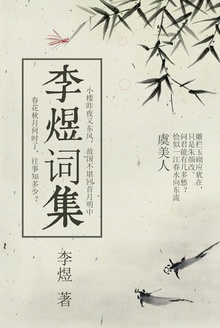 李煜词集
李煜 著
虞美人
春花秋月何时了,往事知多少?
小楼昨夜又东风,故国不堪回首月明中
雕栏玉砌应犹在,
只是朱颜改。
问君能有几多愁?
恰似一江春水向东流